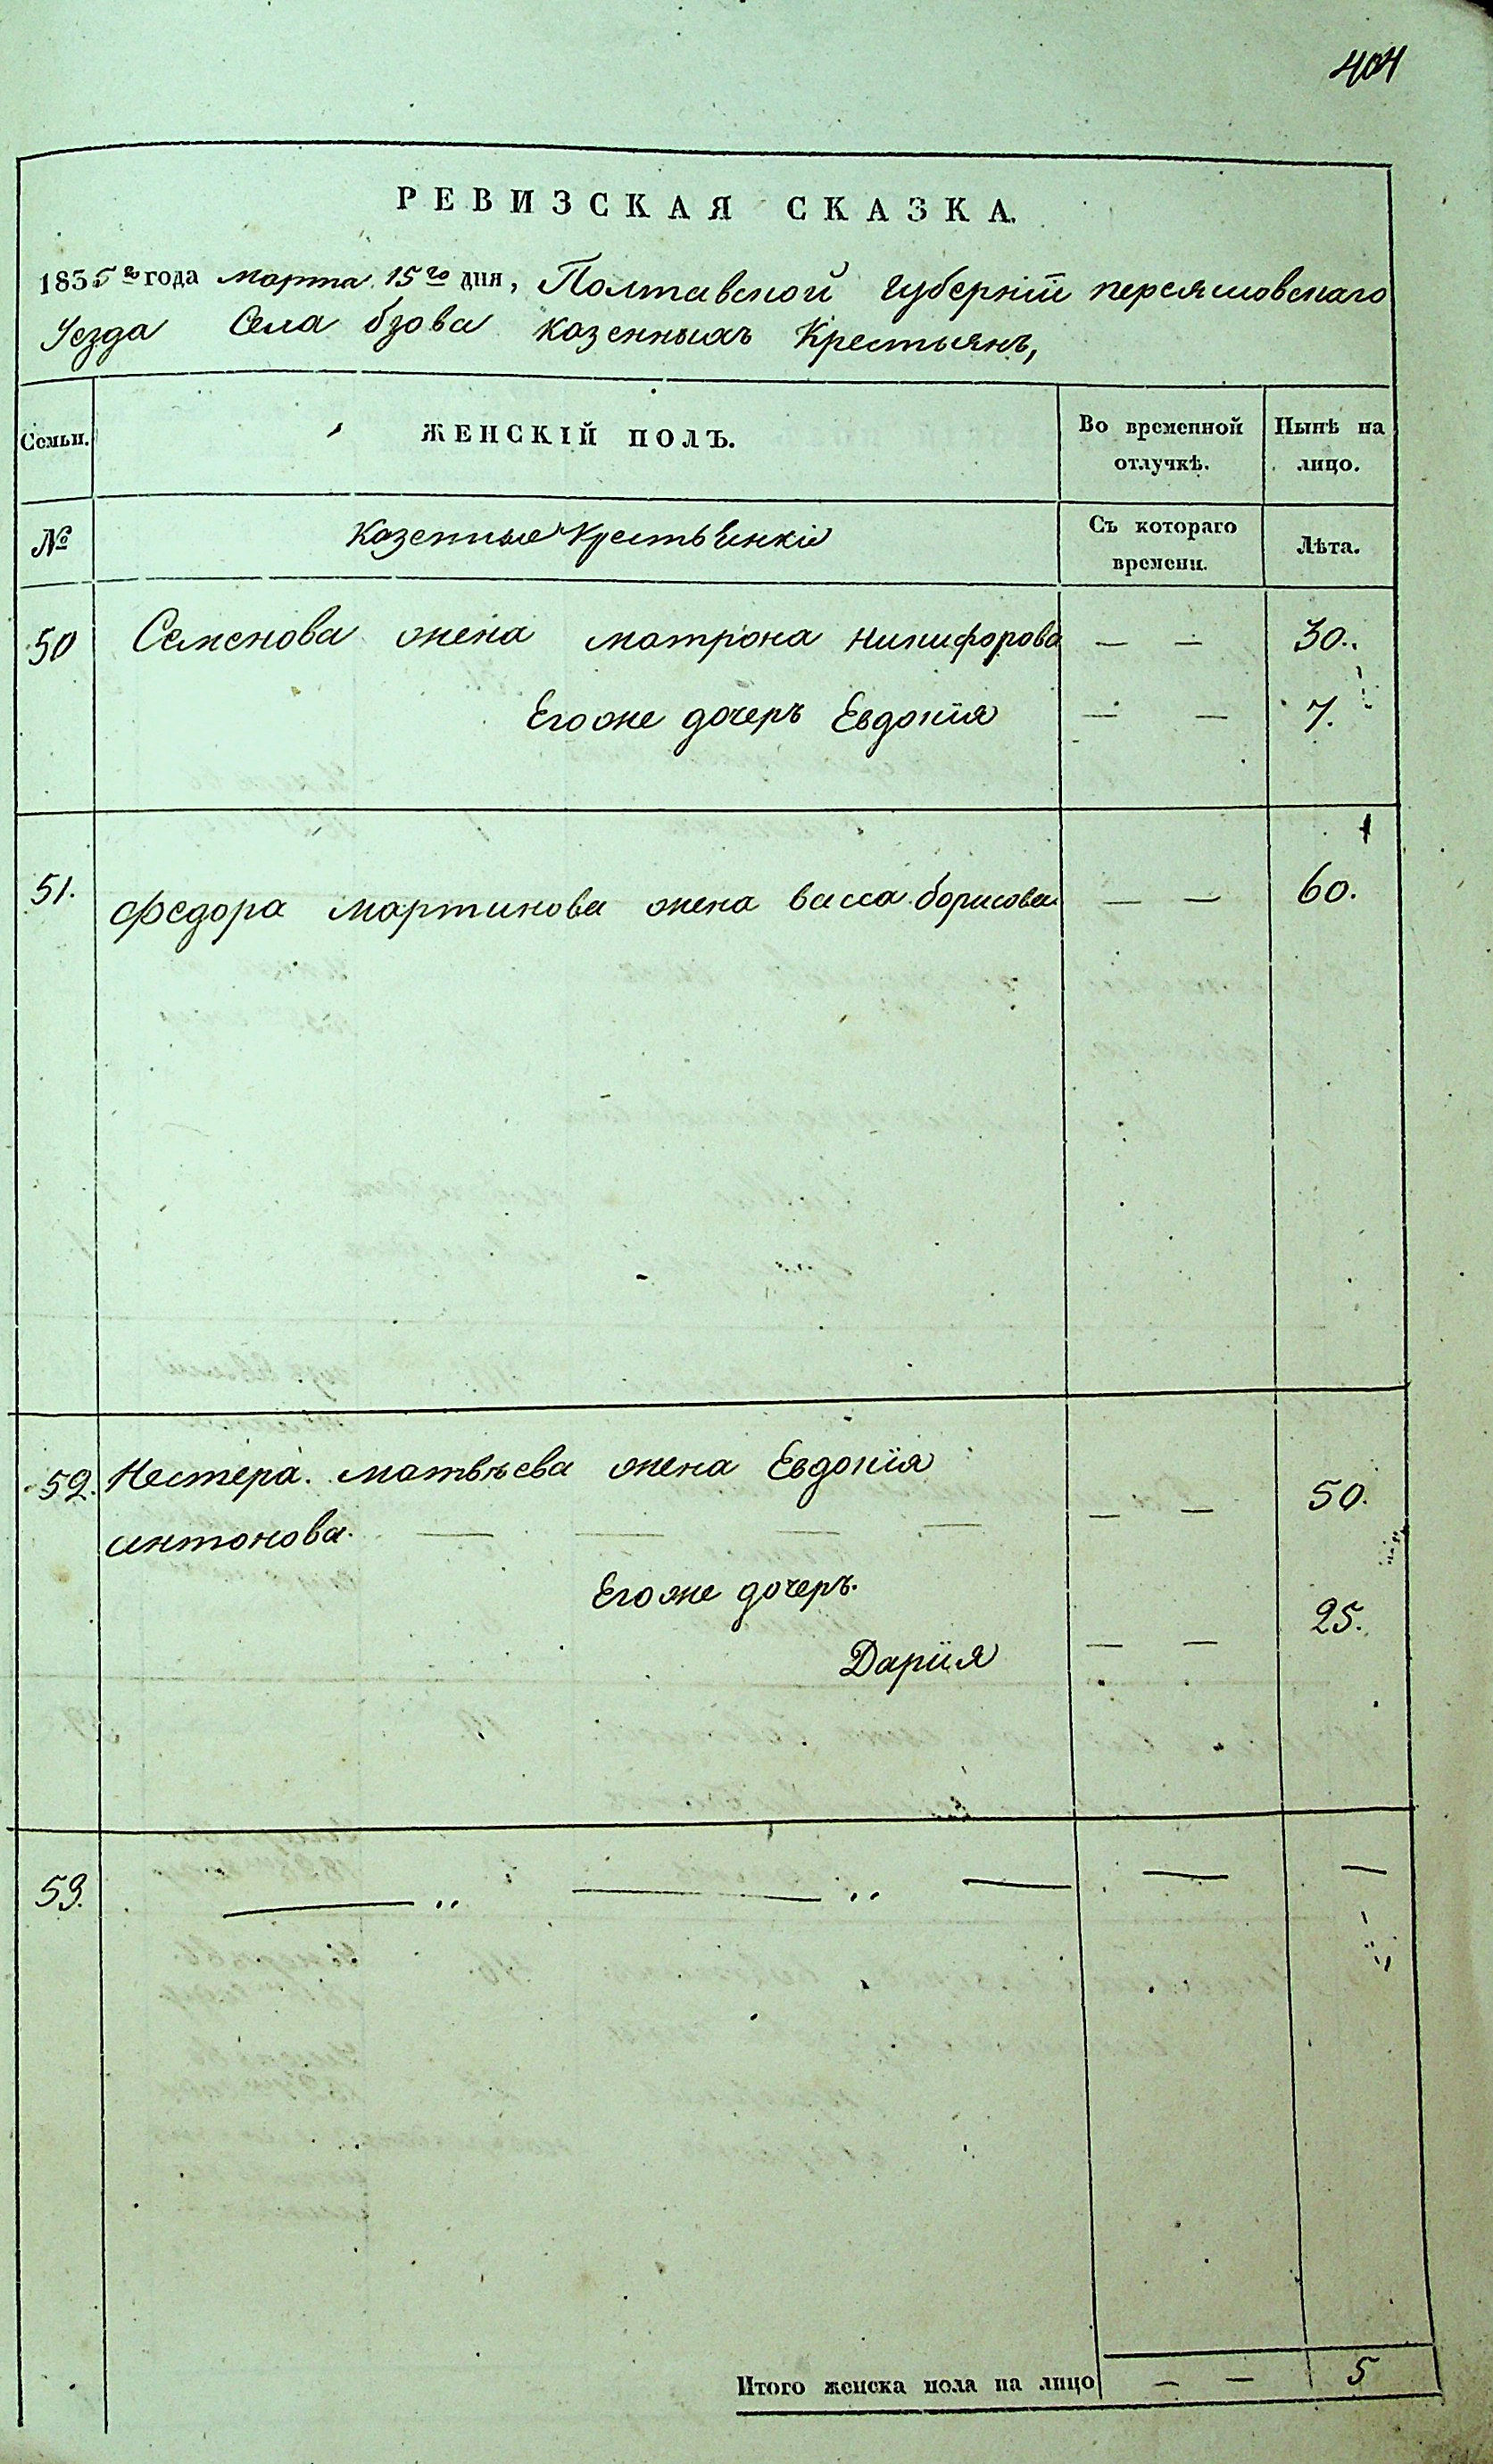 404
РЕВИЗСКАЯ СКАЗКА.
1835го года марта 15го дня, Полтавской губернїи переяшовскаго
Уезда Села бзова казенныхъ Крестьянъ,
Семьи.
ЖЕНСКІЙ ПОЛЪ.
Во временной отлучкѣ.
Нынѣ на лицо.
№
Казенные Крестьянкіе
Съ котораго времени.
Лѣта.
50 Семенова жена матрона никифорова — — 30.
Егоже дочеръ Евдокїя — — 7.
51. Федора мартинова жена васса борисова — — 60.
52. Нестера. матвѣева жена Евдокїя
антонова. — — — — — — 50.
Егоже дочеръ.
Дарїя — — 25.
53. — „ — „ — — —
Итого женска пола на лицо — — 5